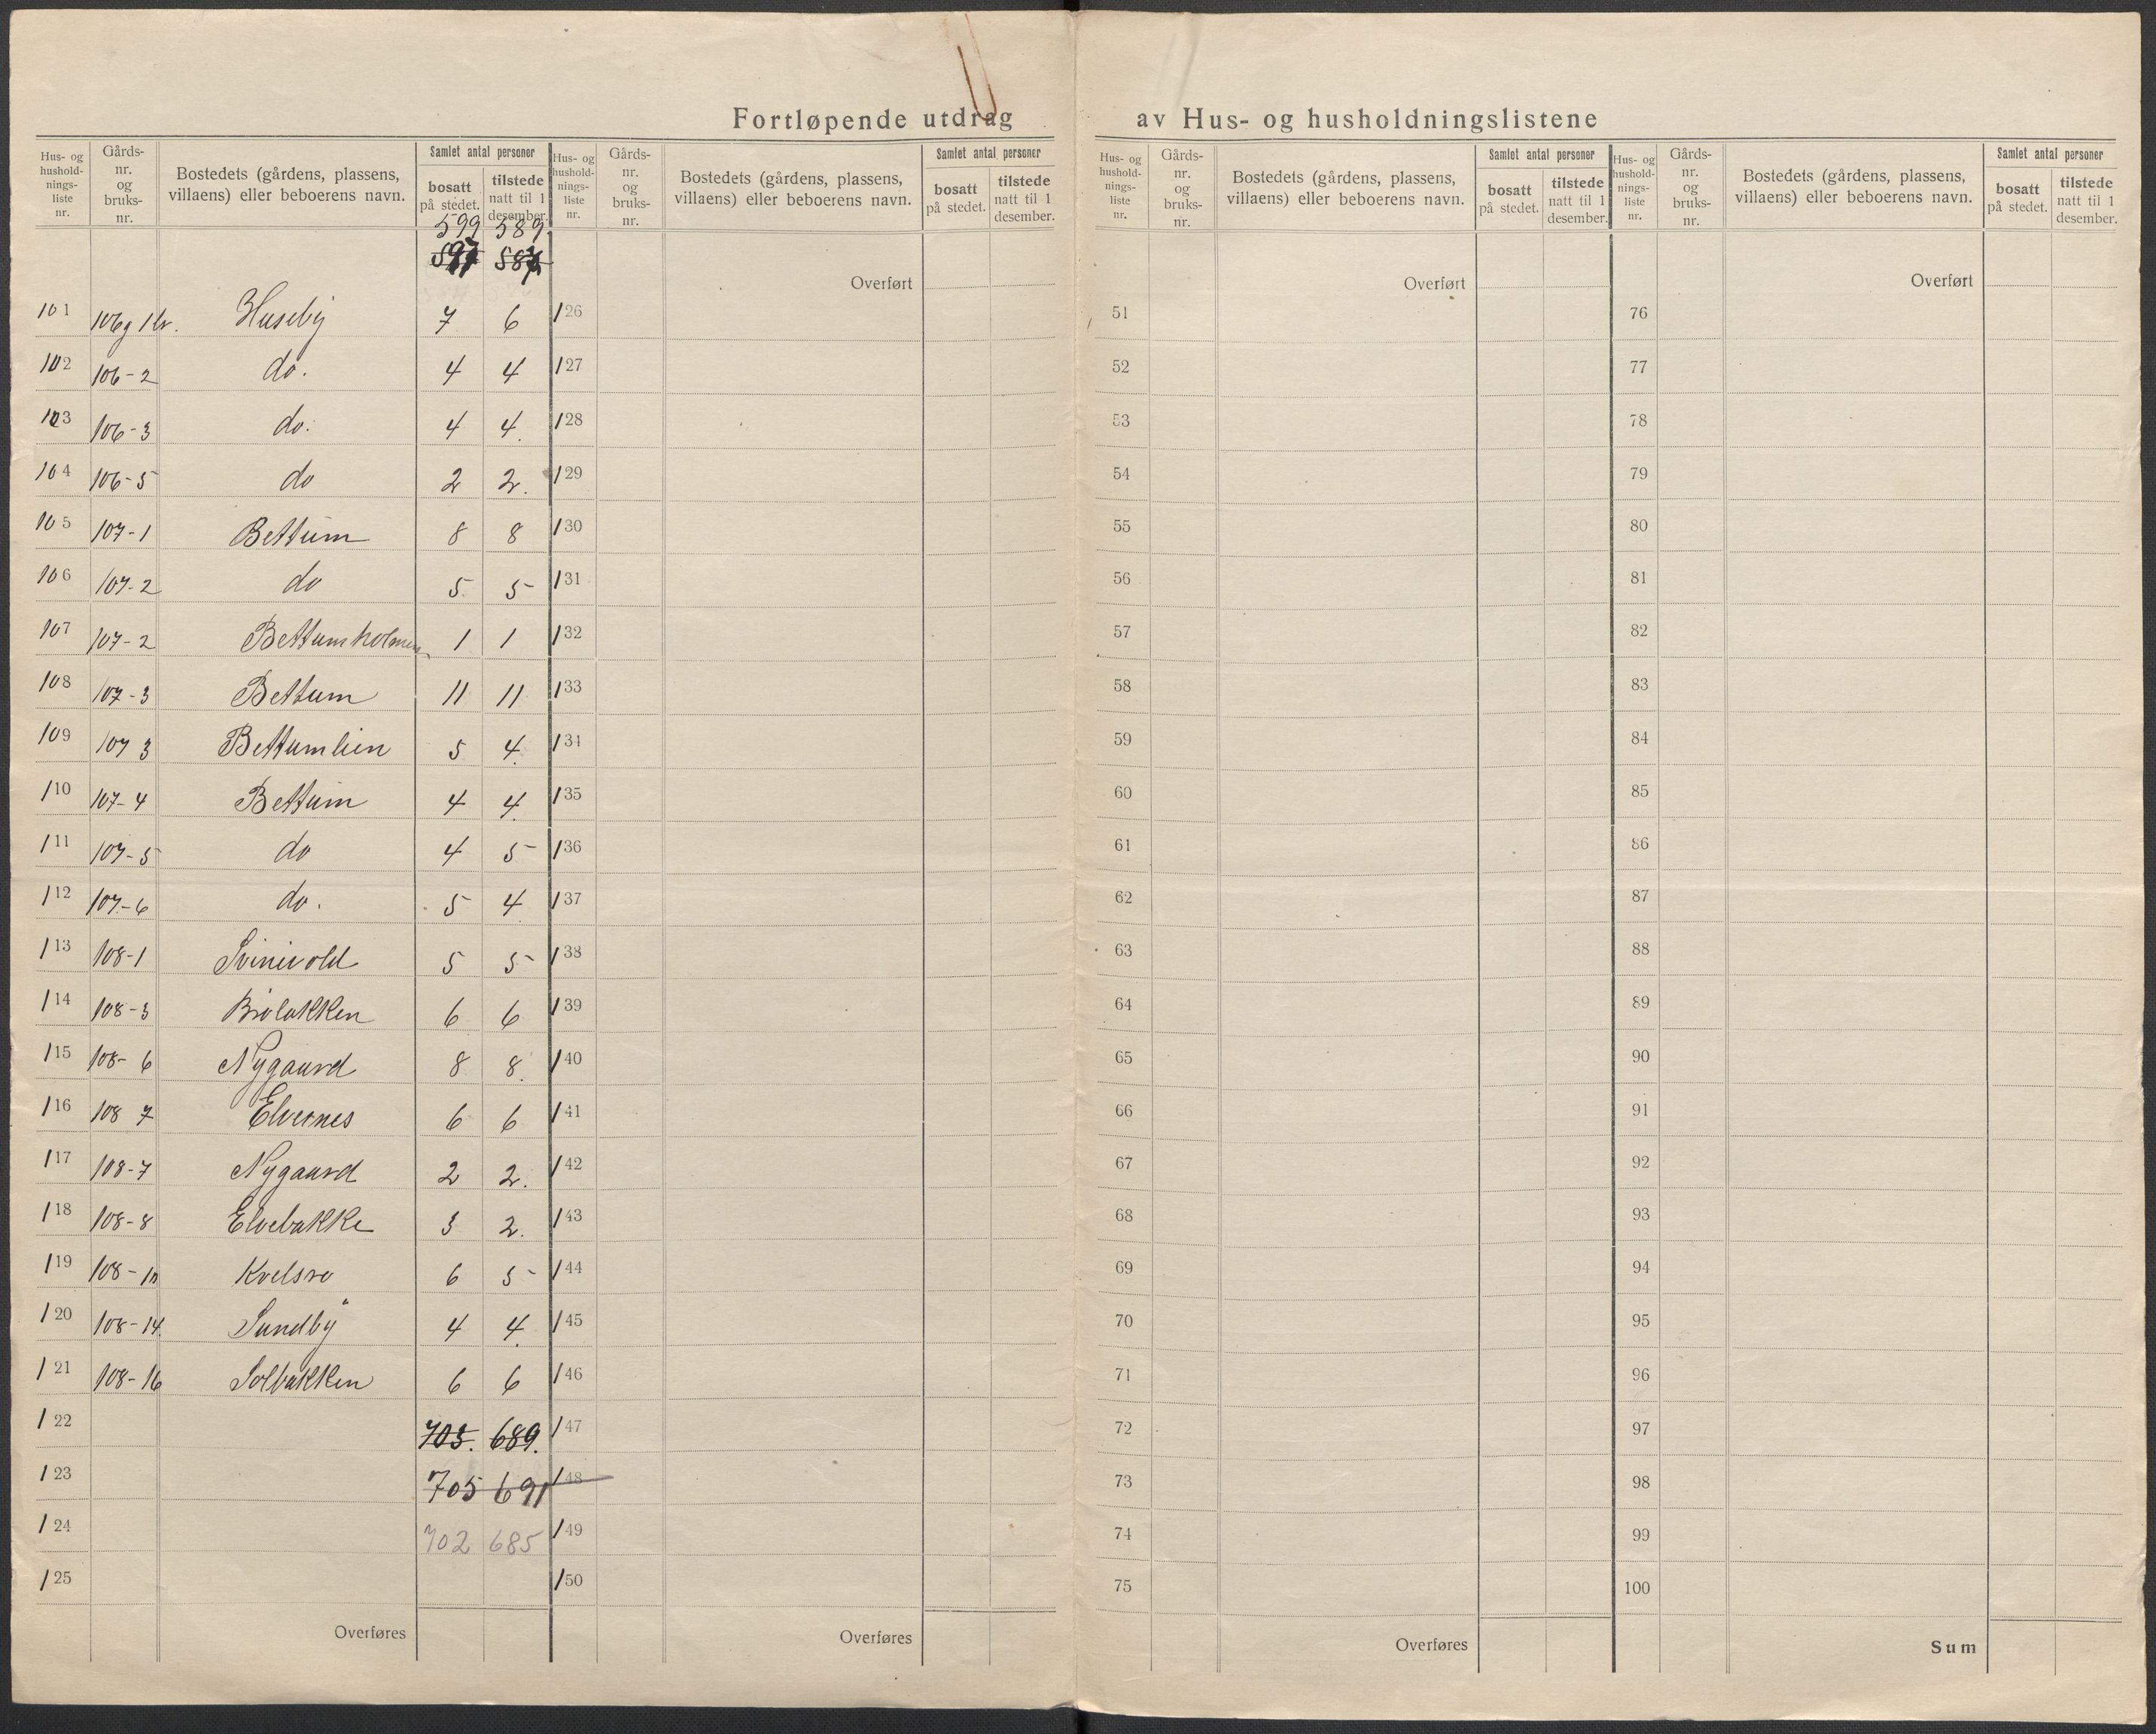 Fortløpende utdrag av Hus- og husholdningslistene
Hus- og hushold-nings-liste nr. Gårds-nr. og bruks-nr. Bostedets (gårdens, plassens, villaens) eller beboerens navn. Samlet antal personer bosatt på stedet. tilstede natt til 1 desember.
599 589
Overført
101 106g 1br. Huseby 7 6
102 106-2 do. 4 4
103 106-3 do. 4 4.
104 106-5 do 2 2.
105 107-1 Bettum 8 8
106 107-2 do 5 5
107 107-2 Bettumholmen 1 1
108 107-3 Bettum 11 11
109 107 3 Bettumlien 5 4.
110 107-4 Bettum 4 4.
111 107-5 do 4 5
112 107-6 do. 5 4
113 108-1 Svinevold 5 5
114 108-3 6 6
115 108-6 Nygaard 8 8.
116 108 7 Elvesnes 6 6
117 108-7 Nygaard 2 2.
118 108-8 Elvebakke 3 2.
119 108-10 Kvelsro 6 5
120 108-14 Sundby 4 4.
121 108-16 Solbakken 6 6
122 703. 689.
123 705 691
124 702 685
125
Overføres
Hus- og hushold-nings-liste nr. Gårds-nr. og bruks-nr. Bostedets (gårdens, plassens, villaens) eller beboerens navn. Samlet antal personer bosatt på stedet. tilstede natt til 1 desember.
Overført
126
127
128
129
130
131
132
133
134
135
136
137
138
139
140
141
142
143
144
145
146
147
148
149
150
Overføres
Hus- og hushold-nings-liste nr. Gårds-nr. og bruks-nr. Bostedets (gårdens, plassens, villaens) eller beboerens navn. Samlet antal personer bosatt på stedet. tilstede natt til 1 desember.
Overført
51
52
53
54
55
56
57
58
59
60
61
62
63
64
65
66
67
68
69
70
71
72
73
74
75
Overføres
Hus- og hushold-nings-liste nr. Gårds-nr. og bruks-nr. Bostedets (gårdens, plassens, villaens) eller beboerens navn. Samlet antal personer bosatt på stedet. tilstede natt til 1 desember.
Overført
76
77
78
79
80
81
82
83
84
85
86
87
88
89
90
91
92
93
94
95
96
97
98
99
100
Sum